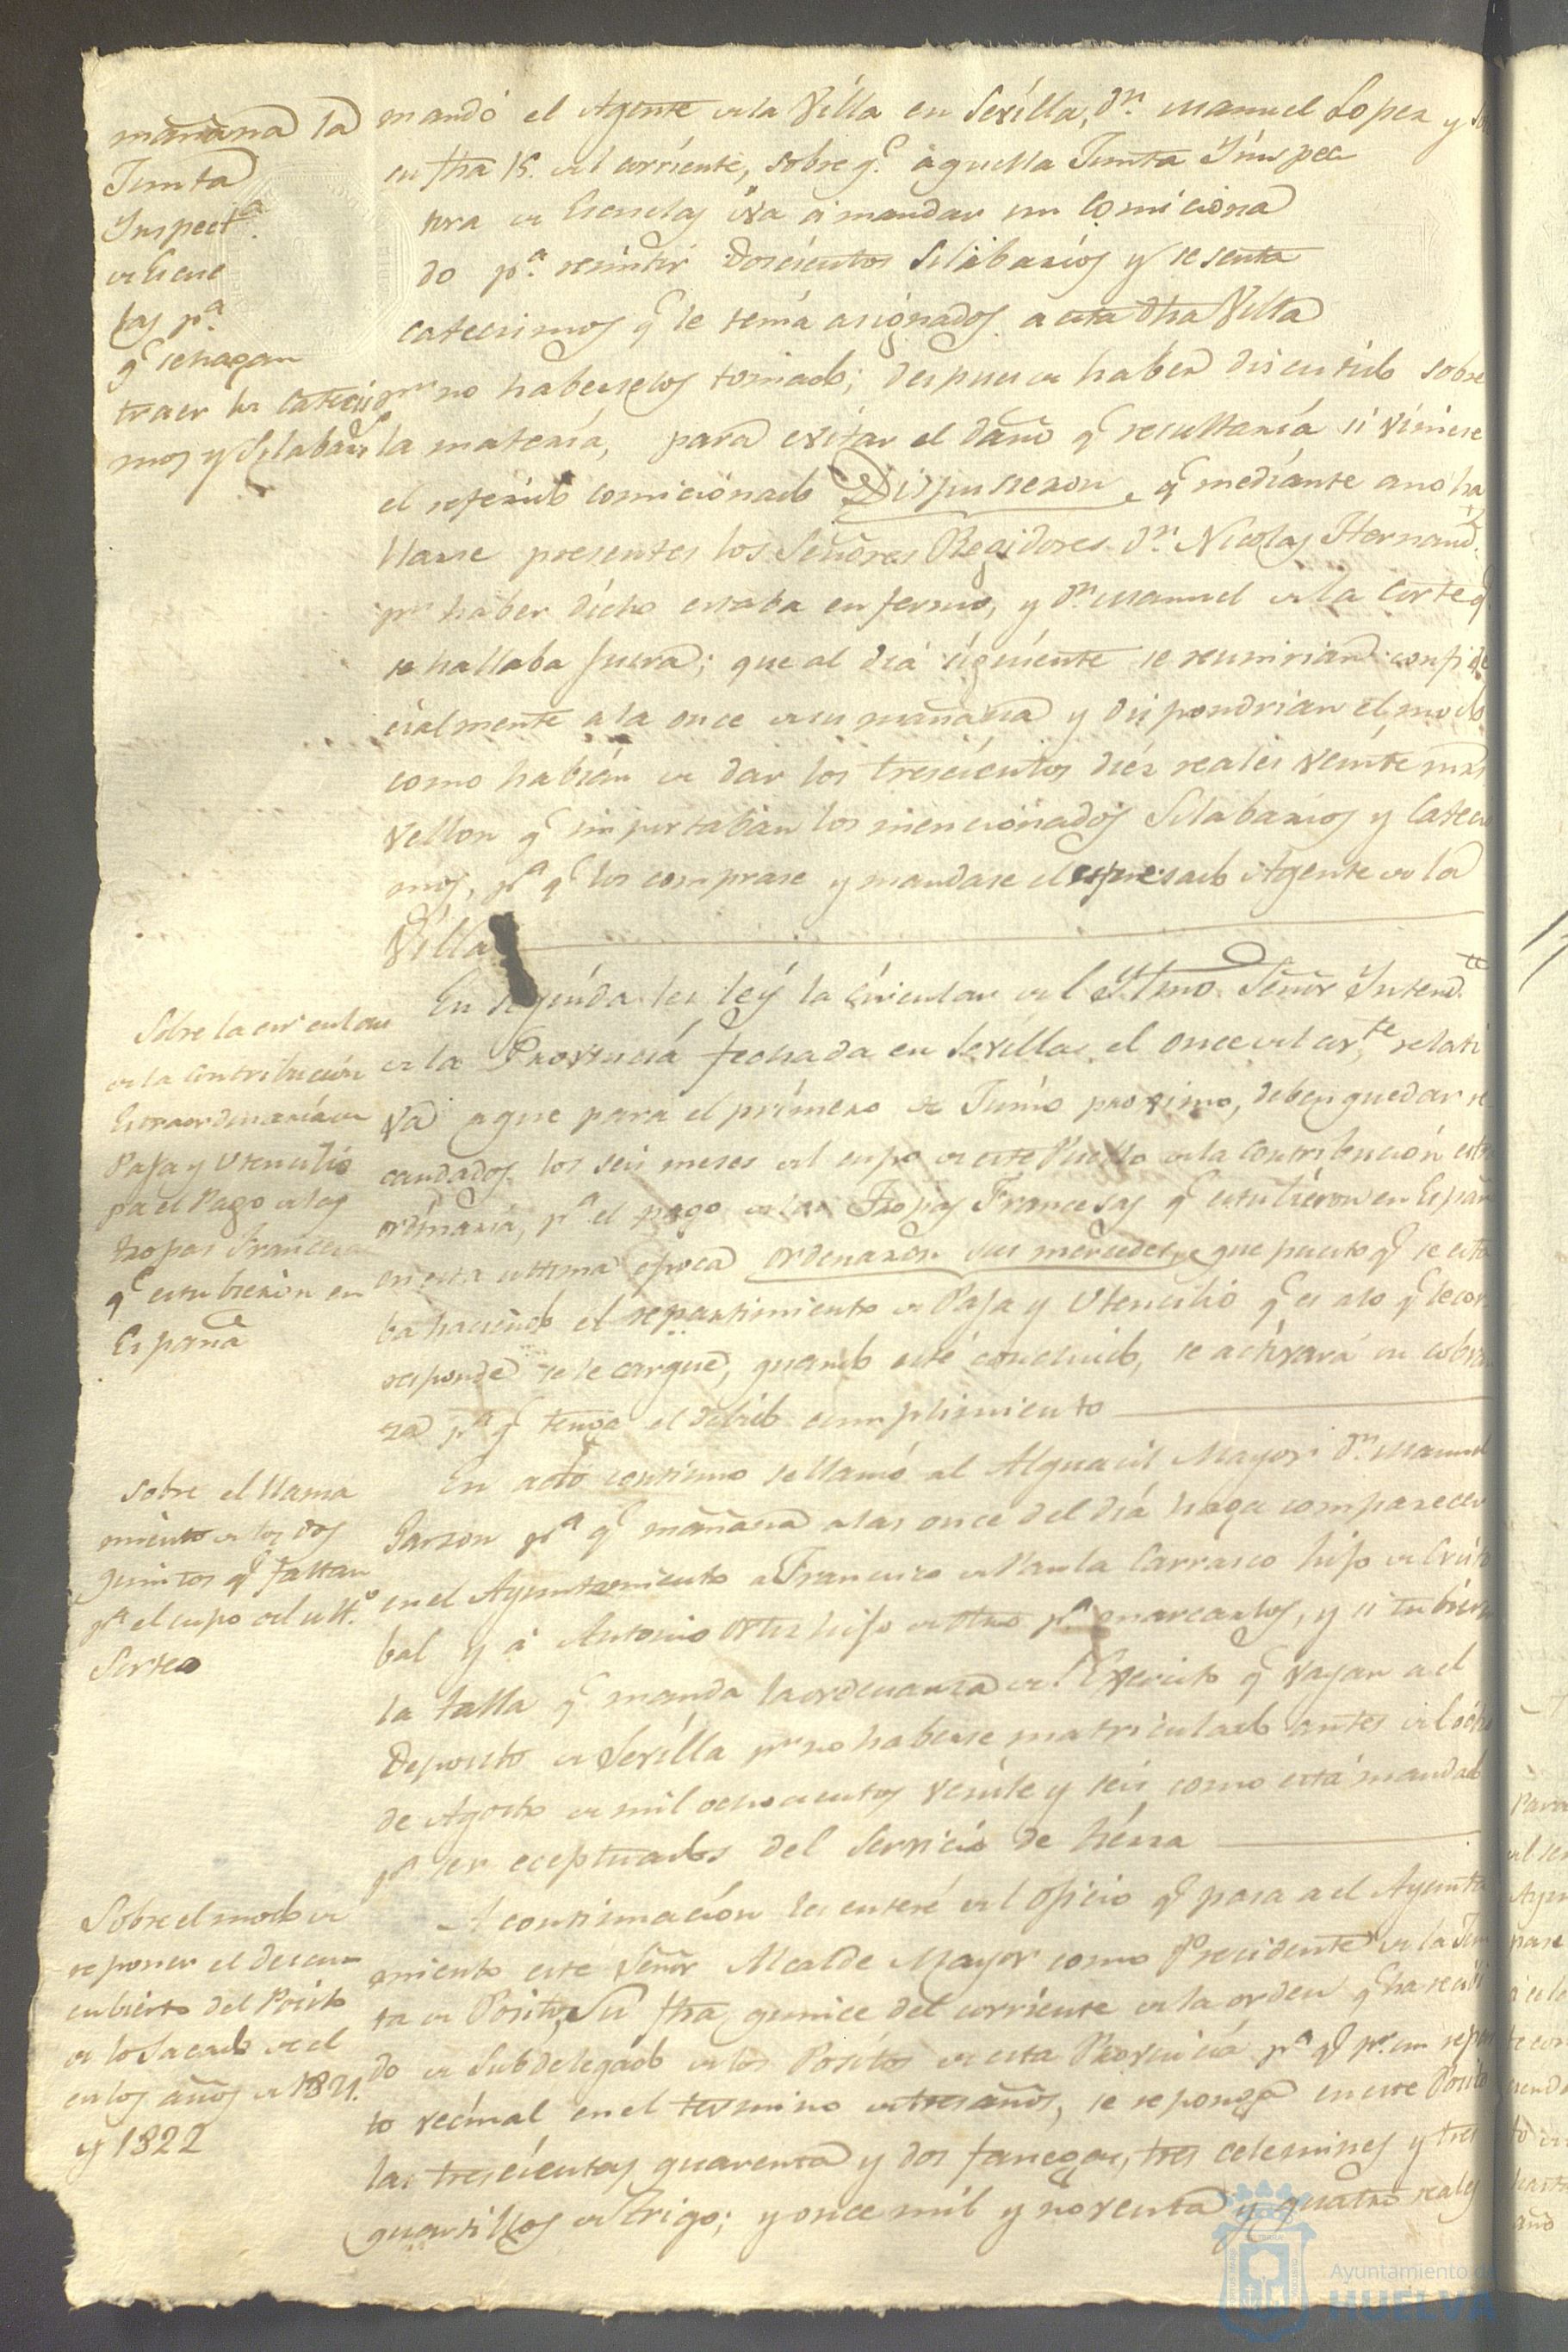 mañana la
Junta
Inspect.ª
de Escue
las p.ª
q.e se hagan
traer los Catecis
mos y Silabarios
mandó el Agente de la Villa en Sevilla, D.n Manuel Lopez y
en fha 15. del corriente, sobre q.e aquella Junta Ynspec
tora de Escuelas iva á mandar un Comiciona
do p.ª remitir Doscientos Silabarios y sesenta
catecismos q.e le tenía asignados a esta dha Villa
p.r no haberselos tomado; despues de haber discutido sobre
la matería, para evitar el daño q.e resultaría si viniese
el referido comicionado Dispusieron, q.e mediante a no ha
llarse presentes los Señores Regidores D.n Nicolas Hernand.z
p.r haber dicho estaba enfermo, y D.n Manuel de la Corte q.e
se hallaba fuera; que al día siguiente se reunirian confide
cialmente a la once de su mañana y dispondrian el modo
como habían de dar los trescientos diez reales veinte mrs
vellon q.e importaban los mencionados Silabarios y Catecis
mos, p.ª q.e los comprase y mandase el espresado Agente de la
Villa
Sobre la circular
de la Contribucion
Estraordinaria de
Paja y Utencilio
pa el Pago de las
tropas Francesas
q.e estubieron en
España
En seguida les leý la circular del Yltmo. Señor Yntend.te
de la Provincia fechada en Sevilla el once del cor.te relati
va a que para el primero de Junio proximo, deben quedar re
caudados los seis meses del cupo de este Pueblo de la Contribución estra
ordinaria, p.ª el pago de las Tropas Francesas q.e estubieron en España
en esta ultima epoca ordenaron sus mercedes, que puesto q.e se esta
ba haciendo el repartimiento de Paja y Utencilio q.e es a lo q.e le cor
responde se le cargue, quando esté concluido, se activará su cobran
za p.ª q.e tenga el debido cumplimiento
Sobre el llama
miento de los dos
quintos q.e faltan
p.ª el cupo del ult.º
Sorteo
En acto continuo se llamó al Alguacil Mayor D.n Manuel
Garzon p.ª q.e mañana a las once del día haga comparecer
en el Ayuntamiento a Francisco de Paula Carrasco hijo de Cristo
bal y á Antonio Ortiz hijo de otro p.ª marcarlos, y si tubieren
la talla q.e manda la ordenanza del Exercito q.e vayan a el
Deposito de Sevilla p.r no haberse matriculado antes del ocho
de Agosto de mil ochocientos veinte y seis como está mandado
p.ª ser eceptuados del Servicio de tierra
Sobre el modo de
reponer el descu
cubierto del Posito
de lo Sacado de el
en los años de 1821.
y 1822
A continuación les enteré del oficio q.e pasa a el Ayunta
miento este Señor Alcalde Mayor como Precidente de la Jun
ta de Posito, Su fha quince del corriente de la orden q.e ha recibi
do de Subdelegado de los Positos de esta Provincia p.ª q.e p.r un repar
to vecinal en el termino de tres años, se reponga en este Posito
las trescientas quarenta y dos fanegas, tres celemines y tres
quartillos de trigo; y once mil y noventa y quatro reales
Ayuntamiento de
HUELVA